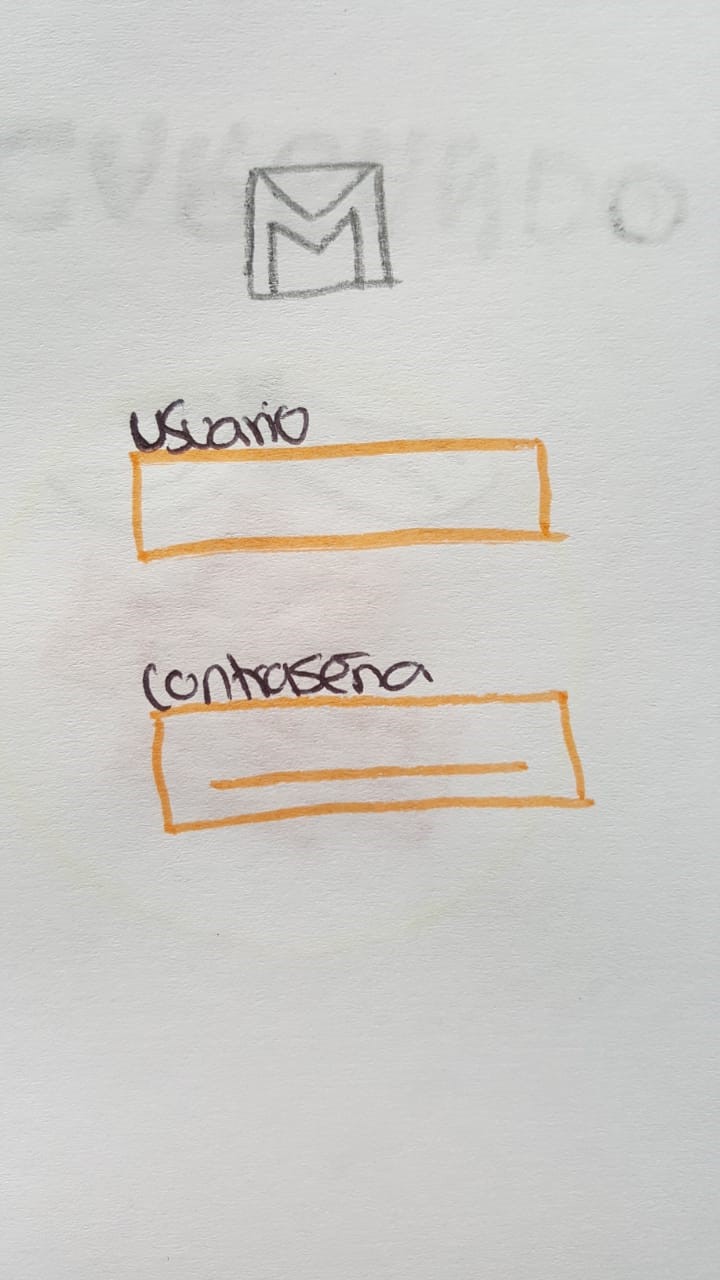 M
usuario
contraseña